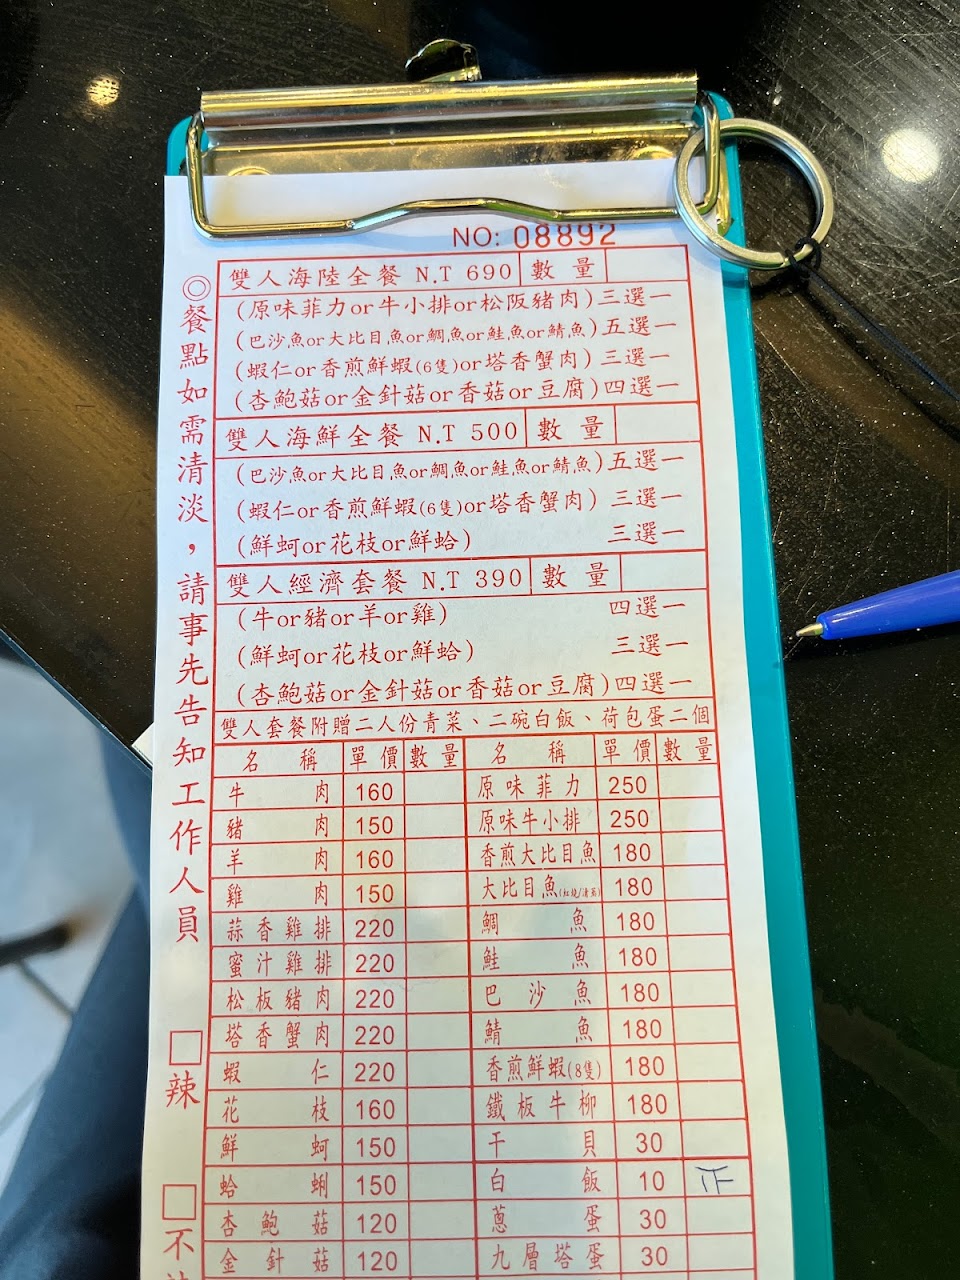 NO: 08892
雙人海陸全餐 N.T 690 數量
(原味菲力or牛小排or松阪豬肉)三選一
(巴沙魚or大比目魚or鯛魚or鮭魚or鯖魚)五選一
(蝦仁or香煎鮮蝦(6隻)or塔香蟹肉)三選一
(杏鮑菇or金針菇or香菇or豆腐)四選一
雙人海鮮全餐 N.T 500 數量
(巴沙魚or大比目魚or鯛魚or鮭魚or鯖魚)五選一
(蝦仁or香煎鮮蝦(6隻)or塔香蟹肉)三選一
(鮮蚵or花枝or鮮蛤) 三選一
雙人經濟套餐 N.T 390 數量
(牛or豬or羊or雞) 四選一
(鮮蚵or花枝or鮮蛤) 三選一
(杏鮑菇or金針菇or香菇or豆腐)四選一
雙人套餐附贈二人份青菜、二碗白飯、荷包蛋二個
名稱 單價 數量 名稱 單價 數量
牛肉 160 原味菲力 250
豬肉 150 原味牛小排 250
羊肉 160 香煎大比目魚 180
雞肉 150 大比目魚(紅燒/清蒸) 180
蒜香雞排 220 鯛魚 180
蜜汁雞排 220 鮭魚 180
松板豬肉 220 巴沙魚 180
塔香蟹肉 220 鯖魚 180
蝦仁 220 香煎鮮蝦(8隻) 180
花枝 160 鐵板牛柳 180
鮮蚵 150 干貝 30
蛤蜊 150 白飯 10
杏鮑菇 120 蔥蛋 30
金針菇 120 九層塔蛋 30
◎餐點如需清淡，請事先告知工作人員
□辣
□不